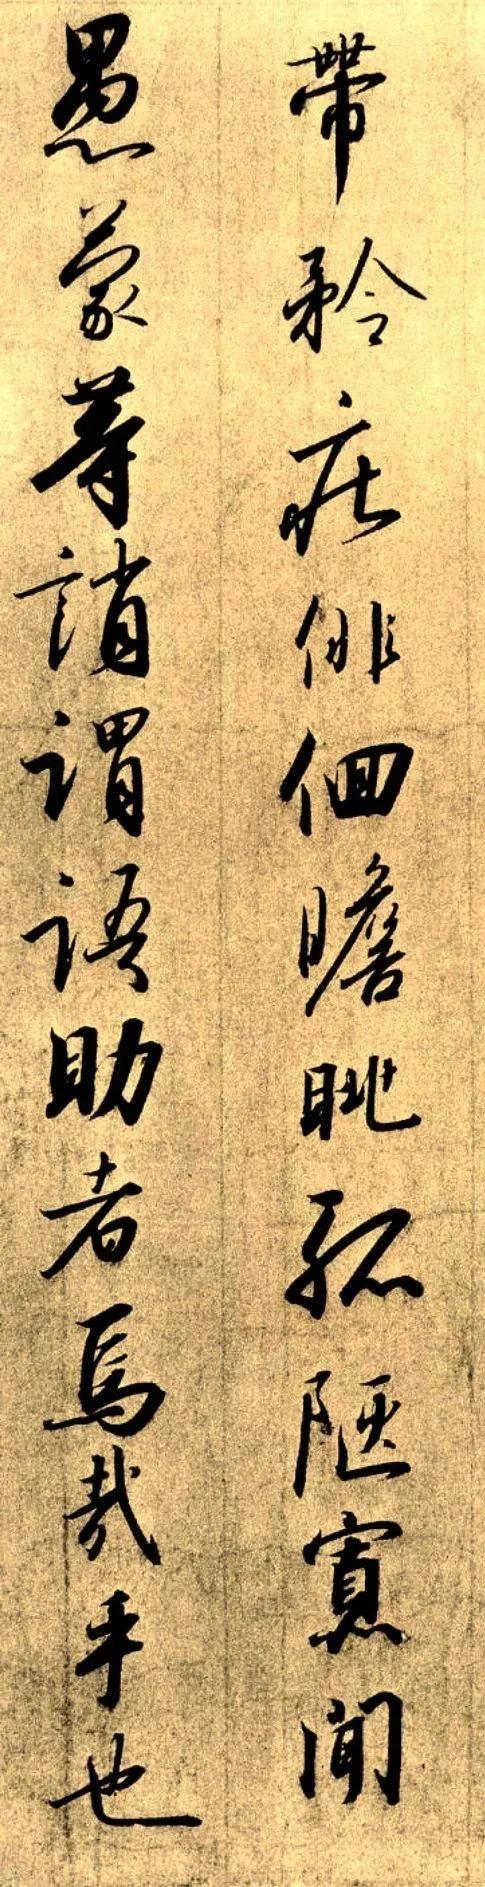 帶矜庄俳佪瞻眺孤陋寡聞
愚蒙等誚謂語助者焉哉乎也